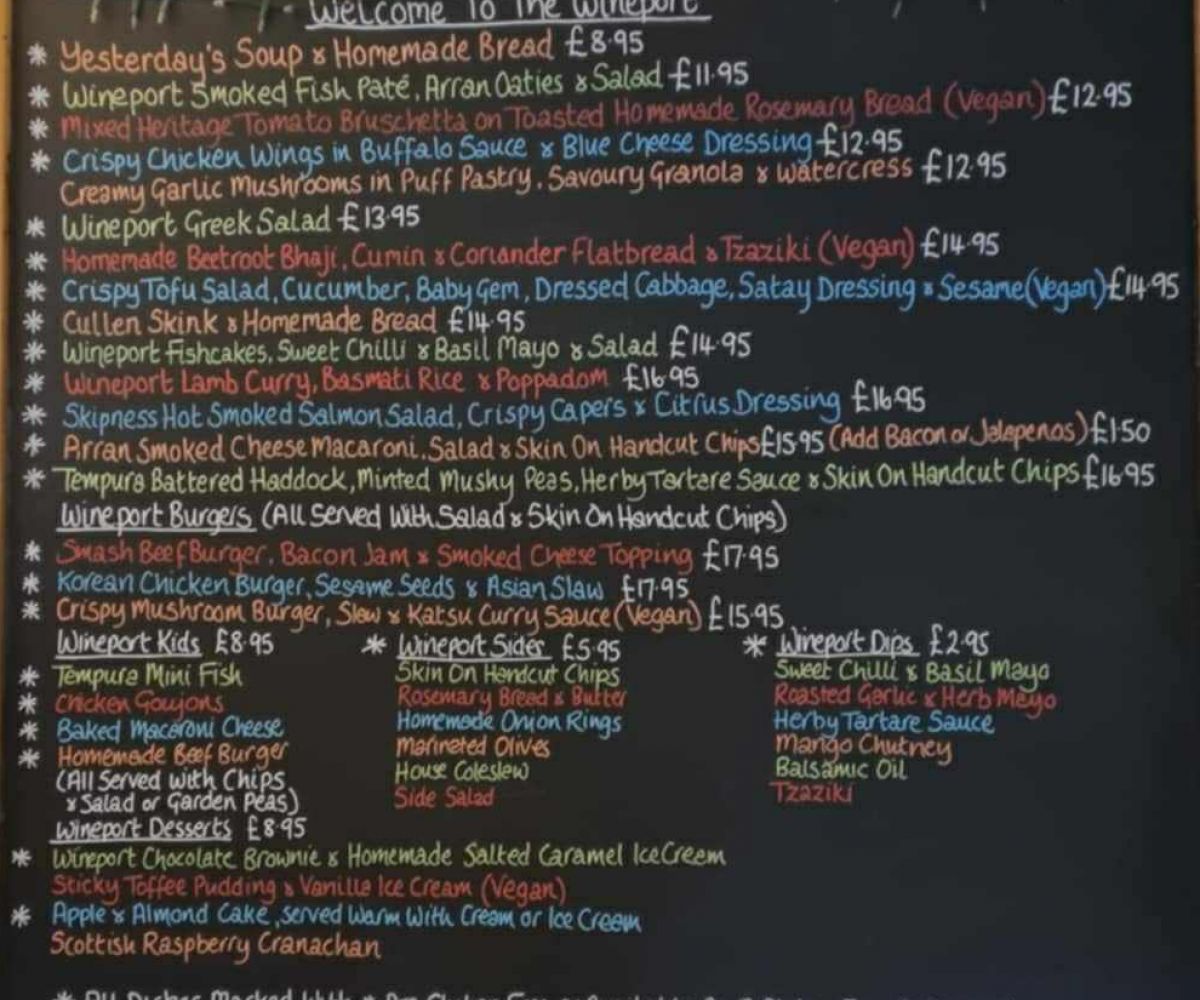 Welcome To The Wineport
* Yesterday's Soup & Homemade Bread £8.95
* Wineport Smoked Fish Paté, Arran Oaties & Salad £11.95
* Mixed Heritage Tomato Bruschetta on Toasted Homemade Rosemary Bread (Vegan) £12.95
* Crispy Chicken Wings in Buffalo Sauce & Blue Cheese Dressing £12.95
Creamy Garlic Mushrooms in Puff Pastry, Savoury Granola & Watercress £12.95
* Wineport Greek Salad £13.95
* Homemade Beetroot Bhaji, Cumin & Coriander Flatbread & Tzaziki (Vegan) £14.95
* Crispy Tofu Salad, Cucumber, Baby Gem, Dressed Cabbage, Satay Dressing & Sesame (Vegan) £14.95
* Cullen Skink & Homemade Bread £14.95
* Wineport Fishcakes, Sweet Chilli & Basil Mayo & Salad £14.95
* Wineport Lamb Curry, Basmati Rice & Poppadom £16.95
* Skipness Hot Smoked Salmon Salad, Crispy Capers & Citrus Dressing £16.95
* Arran Smoked Cheese Macaroni, Salad & Skin On Handcut Chips £15.95 (Add Bacon or Jalepenos) £1.50
* Tempura Battered Haddock, Minted Mushy Peas, Herby Tartare Sauce & Skin On Handcut Chips £16.95
Wineport Burgers (All Served With Salad & Skin On Handcut Chips)
* Smash Beef Burger, Bacon Jam & Smoked Cheese Topping £17.95
* Korean Chicken Burger, Sesame Seeds & Asian Slaw £17.95
* Crispy Mushroom Burger, Slaw & Katsu Curry Sauce (Vegan) £15.95
Wineport Kids £8.95
* Tempura Mini Fish
* Chicken Goujons
* Baked Macaroni Cheese
* Homemade Beef Burger
(All Served With Chips
& Salad or Garden Peas)
* Wineport Sides £5.95
Skin On Handcut Chips
Rosemary Bread & Butter
Homemade Onion Rings
Marinated Olives
House Coleslaw
Side Salad
* Wineport Dips £2.95
Sweet Chilli & Basil Mayo
Roasted Garlic & Herb Mayo
Herby Tartare Sauce
Mango Chutney
Balsamic Oil
Tzaziki
Wineport Desserts £8.95
* Wineport Chocolate Brownie & Homemade Salted Caramel Ice Cream
Sticky Toffee Pudding & Vanilla Ice Cream (Vegan)
* Apple & Almond Cake, served Warm With Cream or Ice Cream
Scottish Raspberry Cranachan
* All Dishes Marked With *